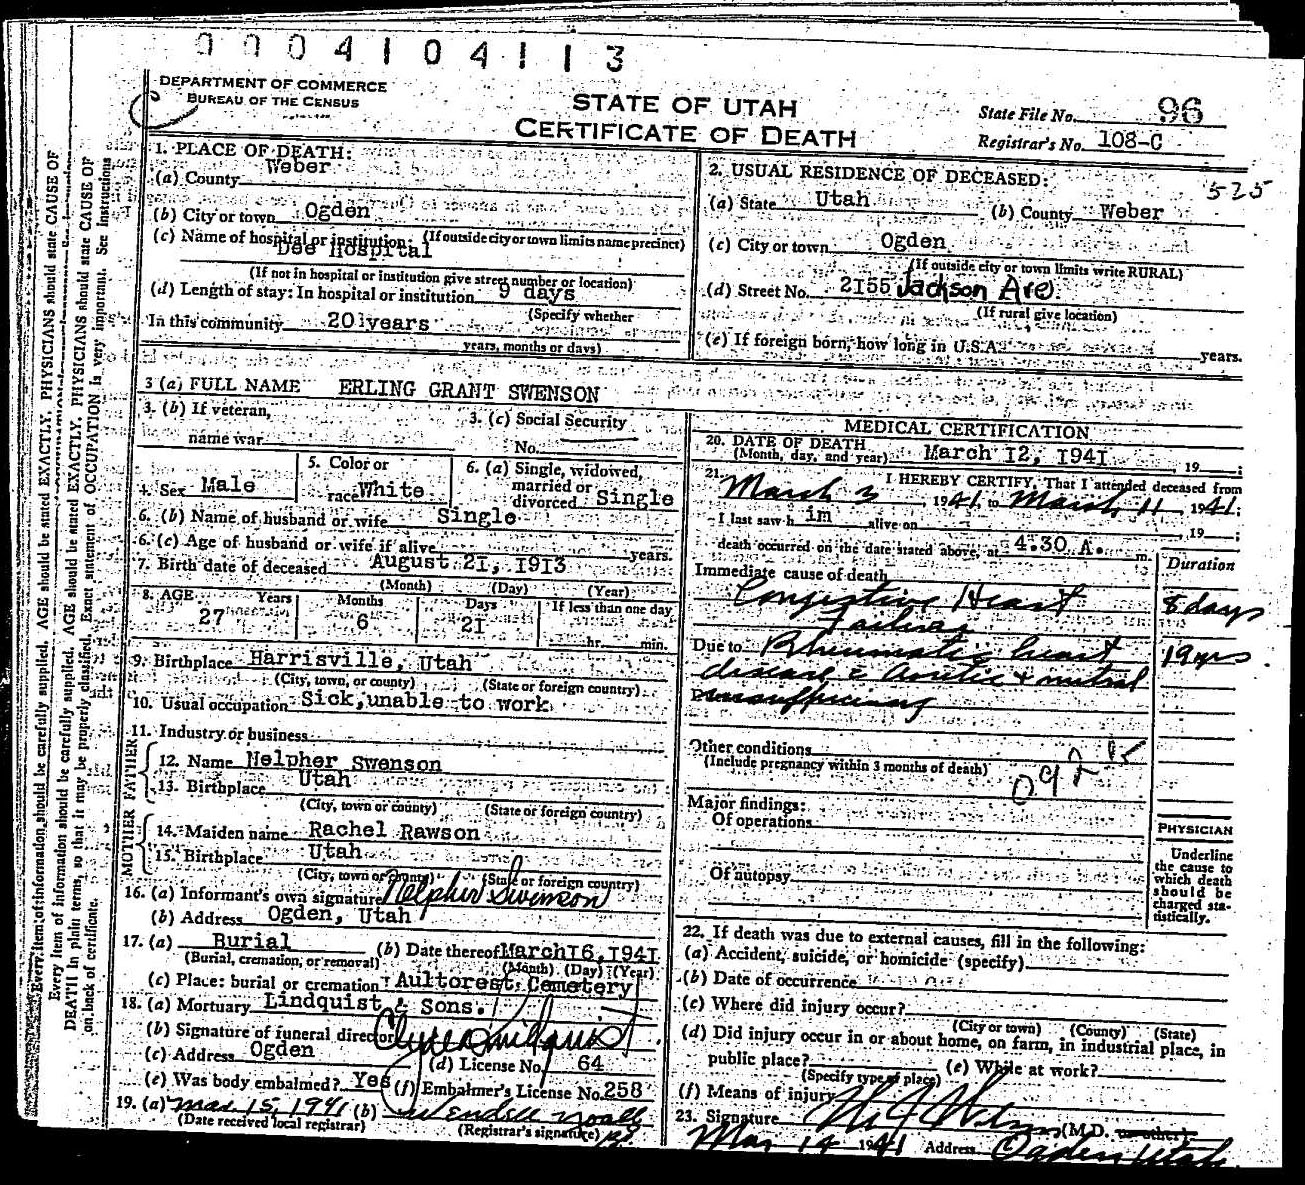 0004104113
DEPARTMENT OF COMMERCE
BUREAU OF THE CENSUS
STATE OF UTAH
CERTIFICATE OF DEATH
State File No. 96
Registrar's No. 108-C
525
1. PLACE OF DEATH:
(a) County Weber
(b) City or town Ogden
(If outside city or town limits name precinct)
(c) Name of hospital or institution:
Dee Hospital
(If not in hospital or institution give street number or location)
(d) Length of stay: In hospital or institution 9 days
(Specify whether
In this community 20 years
years, months or days)
2. USUAL RESIDENCE OF DECEASED:
(a) State Utah (b) County Weber
(c) City or town Ogden
(If outside city or town limits write RURAL)
(d) Street No. 2155 Jackson Ave
(If rural give location)
(e) If foreign born, how long in U.S.A. years.
3 (a) FULL NAME ERLING GRANT SWENSON
3. (b) If veteran,
name war
3. (c) Social Security
No.
4. Sex Male
5. Color or
race White
6. (a) Single, widowed,
married or
divorced Single
6. (b) Name of husband or wife Single
6. (c) Age of husband or wife if alive years.
7. Birth date of deceased August 21, 1913
(Month) (Day) (Year)
8. AGE Years Months Days If less than one day
27 6 21 hr. min.
9. Birthplace Harrisville, Utah
(City, town, or county) (State or foreign country)
10. Usual occupation Sick, unable to work
11. Industry or business
FATHER
12. Name Nelpher Swenson
13. Birthplace Utah
(City, town or county) (State or foreign country)
MOTHER
14. Maiden name Rachel Rawson
15. Birthplace Utah
(City, town or county) (State or foreign country)
16. (a) Informant's own signature Nelpher Swenson
(b) Address Ogden, Utah
17. (a) Burial (b) Date thereof March 16, 1941
(Burial, cremation, or removal) (Month) (Day) (Year)
(c) Place: burial or cremation Aultorest Cemetery
18. (a) Mortuary Lindquist & Sons.
(b) Signature of funeral director Clyde Lindquist
(c) Address Ogden (d) License No. 64
(e) Was body embalmed? Yes (f) Embalmer's License No. 258
19. (a) Mar. 15, 1941 (b) Wendell
(Date received local registrar) (Registrar's signature)
MEDICAL CERTIFICATION
20. DATE OF DEATH
(Month, day, and year) March 12, 1941, 19 ;
21. I HEREBY CERTIFY, That I attended deceased from
March 3 1941, to March 11 1941;
I last saw h im alive on , 19 ;
death occurred on the date stated above, at 4:30 A. m.
Immediate cause of death Duration
Congestive Heart 8 days
Failure
Due to Rheumatic heart 19 yrs.
disease c Aortic + mitral
insufficiency
Other conditions
(Include pregnancy within 3 months of death)
092
Major findings:
Of operations
Of autopsy
PHYSICIAN
Underline
the cause to
which death
should be
charged sta-
tistically.
22. If death was due to external causes, fill in the following:
(a) Accident, suicide, or homicide (specify)
(b) Date of occurrence
(c) Where did injury occur?
(City or town) (County) (State)
(d) Did injury occur in or about home, on farm, in industrial place, in
public place? (e) While at work?
(Specify type of place)
(f) Means of injury
23. Signature (M.D. or other)
Mar 14 1941 Address Ogden, Utah
Every item of information should be carefully supplied. AGE should be stated EXACTLY. PHYSICIANS should state CAUSE OF
DEATH in plain terms, so that it may be properly classified. Exact statement of OCCUPATION is very important. See Instructions
on back of certificate.